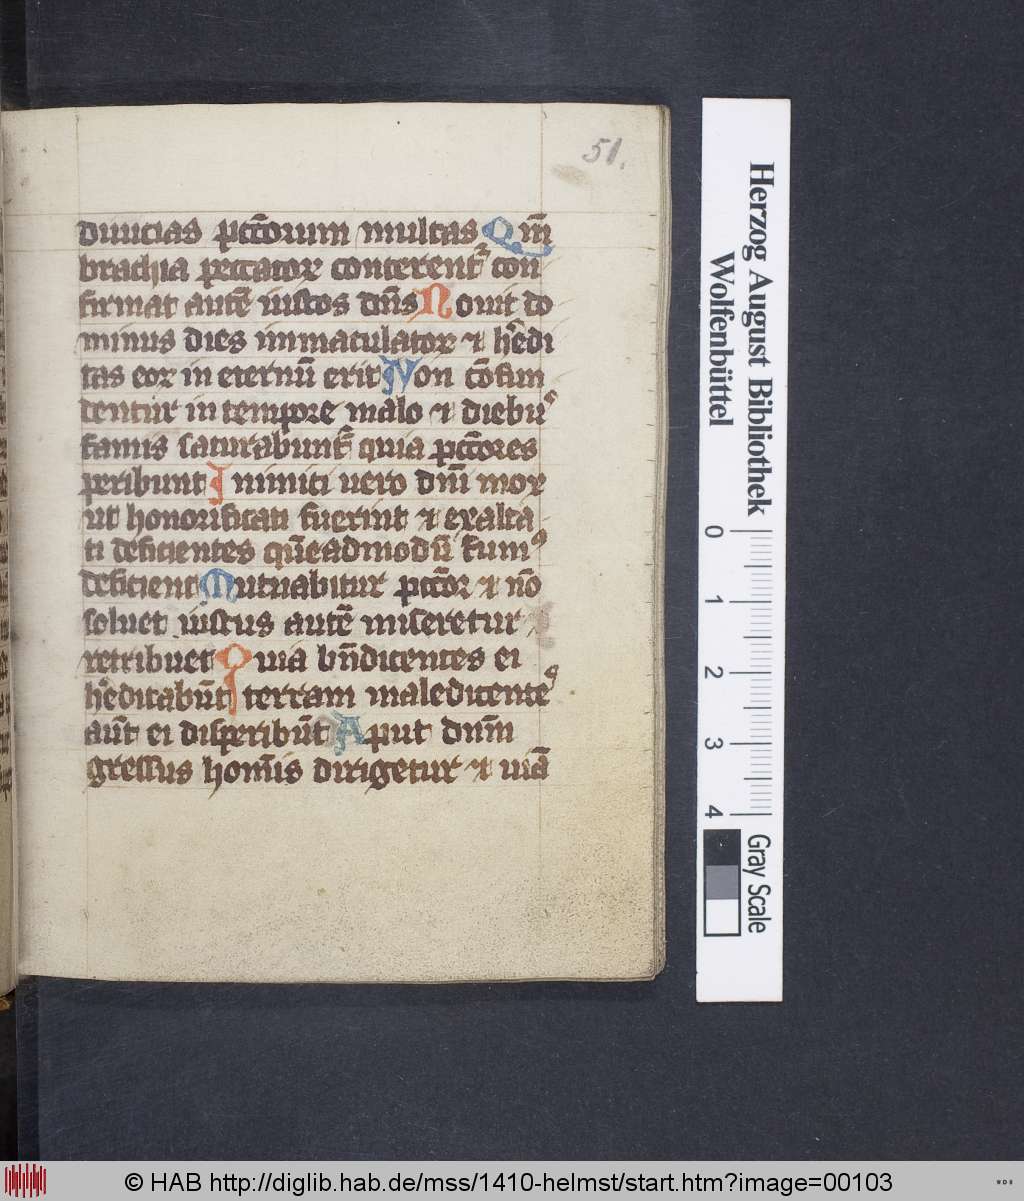 51.
diuicias pctōrum multas Qm̄
brachia peccatoꝝ conterentᷣ con
firmat autē iustos dn̄s Nouit do
minus dies immaculatoꝝ ⁊ h̓edi
tas eoꝝ in eternū erit Non cōfun
dentur in tempore malo ⁊ diebuꝰ
famis saturabuntᷣ quia pctōres
peribunt Inimici uero dn̄i mox
ut honorificati fuerint ⁊ exalta
ti deficientes quēadmodū fumꝰ
deficient Mutuabitur pctōr ⁊ nō
soluet iustus autē miseretur ⁊
retribuet Quia bn̄dicentes ei
h̓editabūt terram maledicenteꝰ
aūt ei disperibūt Aput dnm̄
gressus homīs dirigetur ⁊ uiā
Herzog August Bibliothek
Wolfenbüttel
0 1 2 3 4
Gray Scale
© HAB http://diglib.hab.de/mss/1410-helmst/start.htm?image=00103